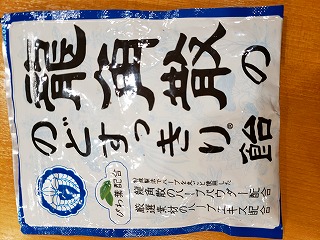 龍角散の
のどすっきり®飴
びわ葉配合
龍角散のハーブパウダー配合
厳選素材のハーブエキス配合